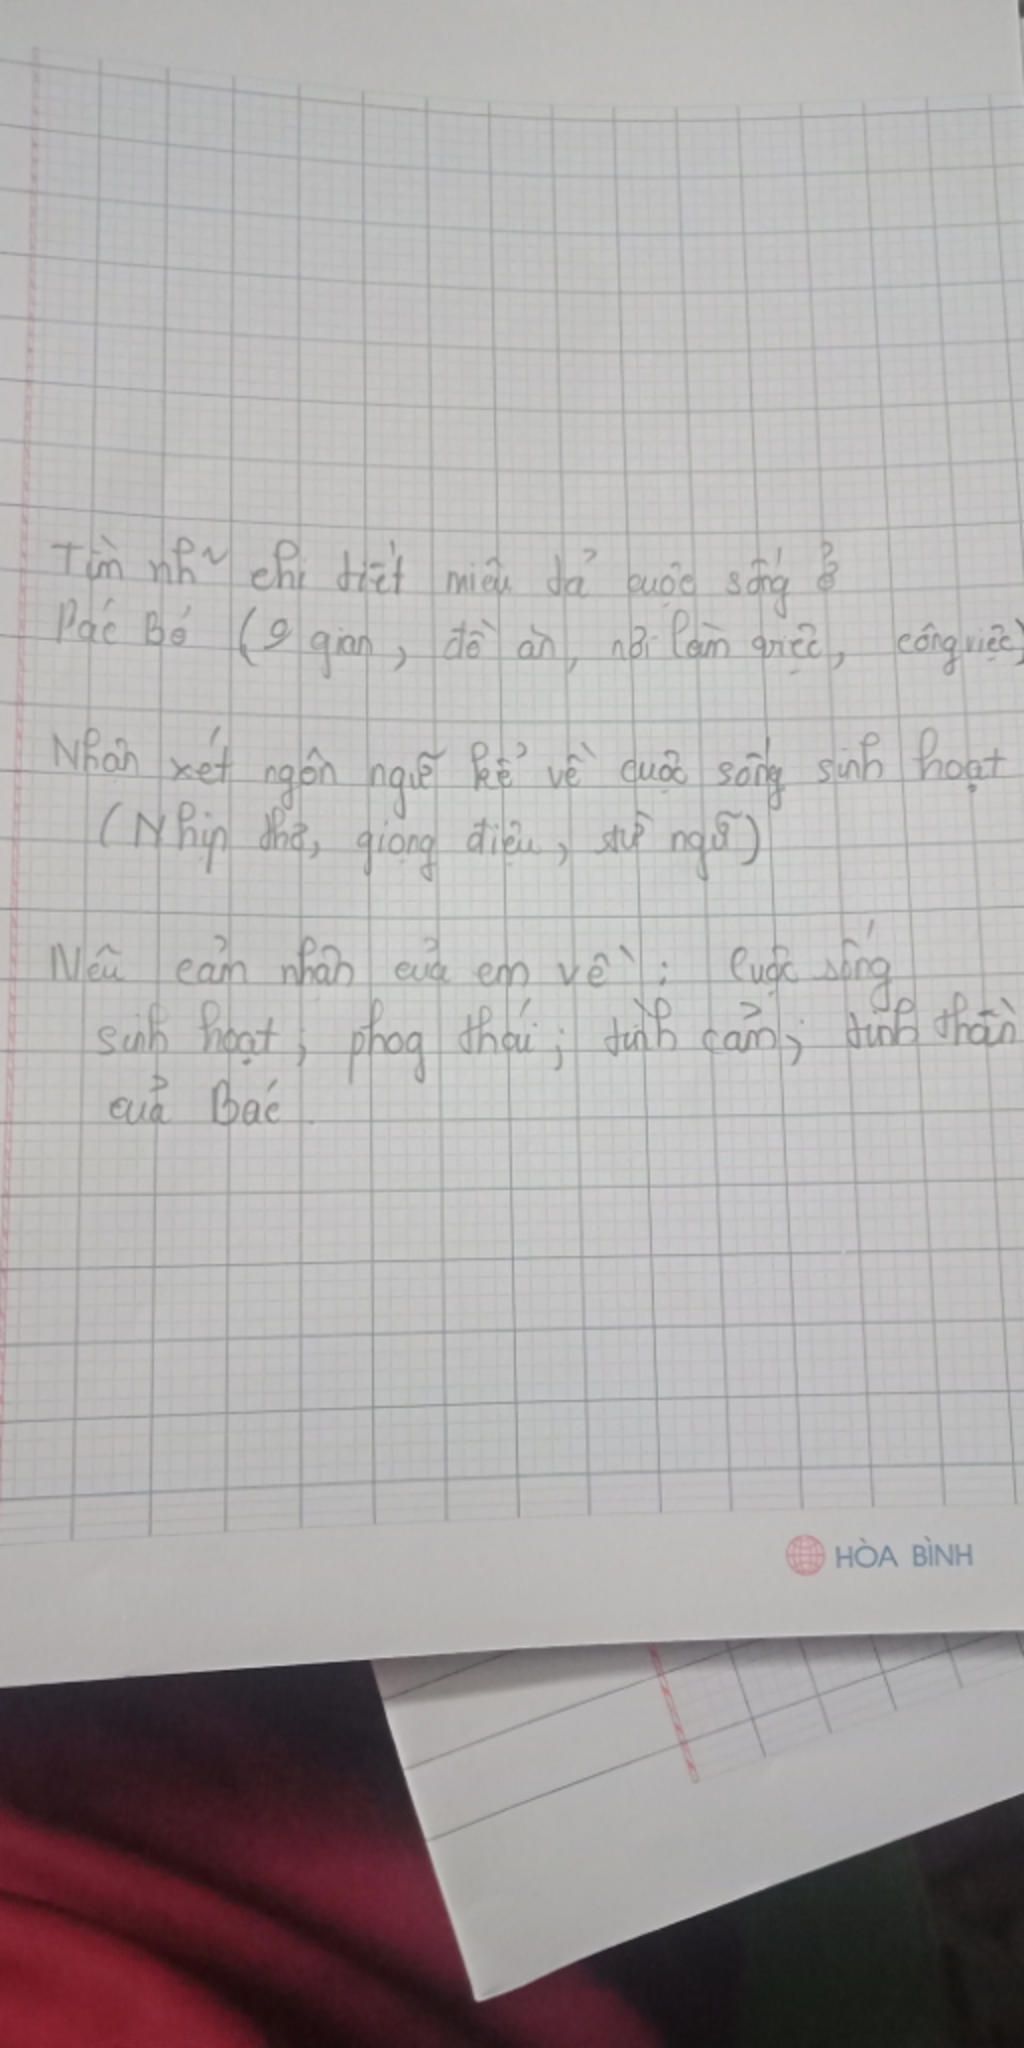 Tìm nh~ chi tiết miêu tả cuộc sống ở
Pác Bó (0 gian, đồ ăn, nơi làm việc, công việc)
Nhận xét ngôn ngữ kể về cuộc sống sinh hoạt
(Nhịp thơ, giọng điệu, từ ngữ)
Nêu cảm nhận của em về : Cuộc sống
sinh hoạt; phog thái; tình cảm; tinh thần
của Bác
HÒA BÌNH